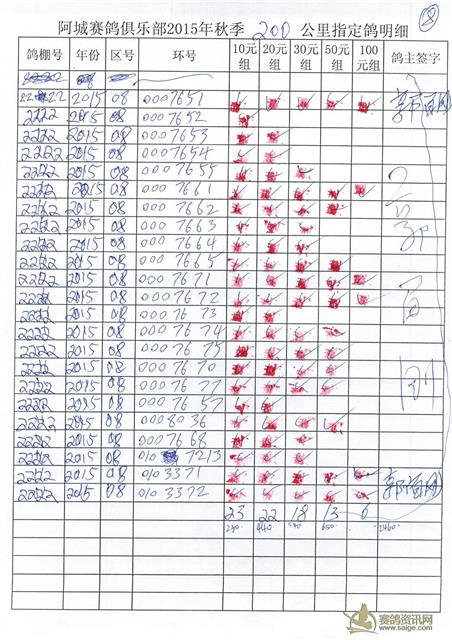 ⑧
阿城赛鸽俱乐部2015年秋季 200 公里指定鸽明细
鸽棚号 年份 区号 环号 10元组 20元组 30元组 50元组 100元组 鸽主签字
2222 2015 08 0007651
2222 2015 08 0007652
2222 2015 08 0007653
2222 2015 08 0007654
2222 2015 08 0007655
2222 2015 08 0007661
2222 2015 08 0007662
2222 2015 08 0007663
2222 2015 08 0007664
2222 2015 08 0007665
2222 2015 08 0007671
2222 2015 08 0007672
2222 2015 08 0007673
2222 2015 08 0007674
2222 2015 08 0007675
2222 2015 08 0007670
2222 2015 08 0007677
2222 2015 08 0007657
2222 2015 08 0008036
2222 2015 08 0007668
2222 2015 08 010 7213
2222 2015 08 0103371
2222 2015 08 0103372
23 22 18 13 6
230 440 540 650 2460
赛鸽资讯网
www.saige.com